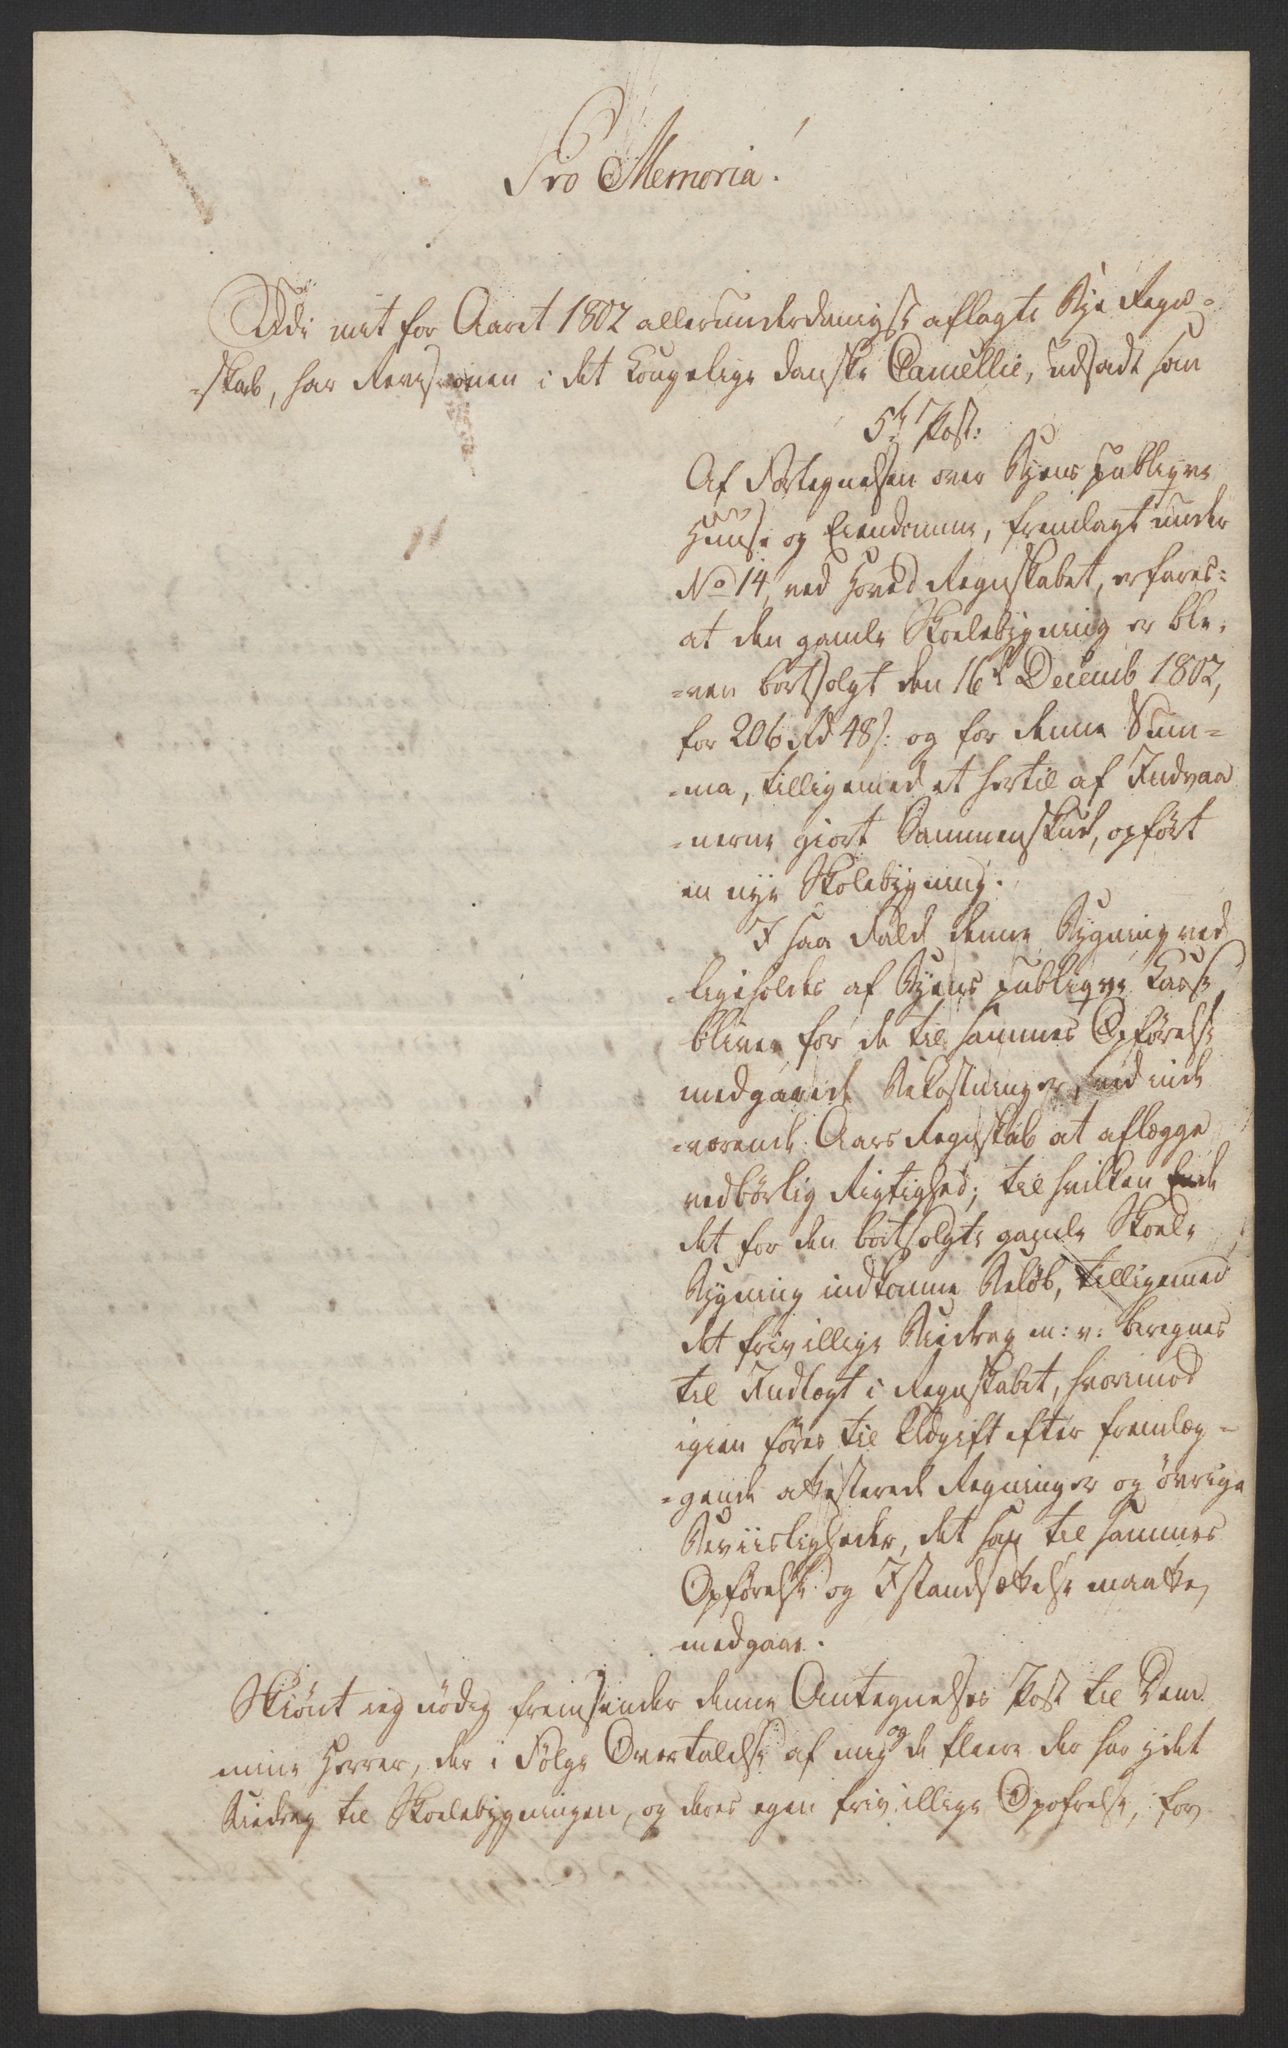 Pro Memoria!
Udi mit for Aaret 1802 allerunderdanigst aflagte Bye Regn-
-skab, har Revisionen i det Kongelige danske Cancellie, udsadt som
5te Post:
Af Fortegnelsen over Byens publiqve
Huuse og Eiendomme, fremlagt under
No 14, ved Hoved Regnskabet, erfares:
at den gamle Skoelebygning er ble-
-ven bortsolgt den 16de Decemb 1802,
for 206 Rd 48 s: og for denne Sum-
-ma, tilligemed et hertil af Indvaa
-nerne giort Sammenskud, opført
en nye Skolebygning.
I saa Fald denne Bygning ved
-ligeholdes af Byens publiqve Casse,
bliver for de til sammes Opførelse
medgaaede Bekostninger, ved inde
-værende Aars Regnskab at aflægge
vedbørlig Rigtighed; til hvilken Ende
det for den bortsolgte gamle Skoele
Bygning indkomne Beløb, tilligemed
det frivillige Biedrag m: v: beregnes
til Indtægt i Regnskabet, hvorimod
igien føres til Udgift efter fremlæg-
-gende attesterede Regninger og øvrige
Beviisligheder, det som til sammes
Opførelse og Istandsættelse maatte
medgaae.
Skiønt ieg nødig fremsender denne Antegnelses Post til Dem
mine Herrer, der i Følge Overtalelse af mig og de fleere der har ydet
Biedrag til Skoelebygningen, og deres egen frivillige Opofrelse, for